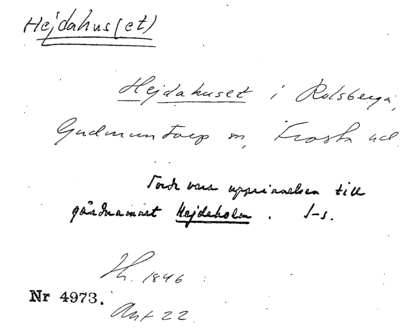 Hejdahus(et)
Hejdahuset i Rolsberga,
Gudmuntorp sn, Frosta hd.
Torde vara upprinnelsen till
gårdnamnet Hejdeholm. I-s.
Th. 1846
Nr 4973.
Ant 22